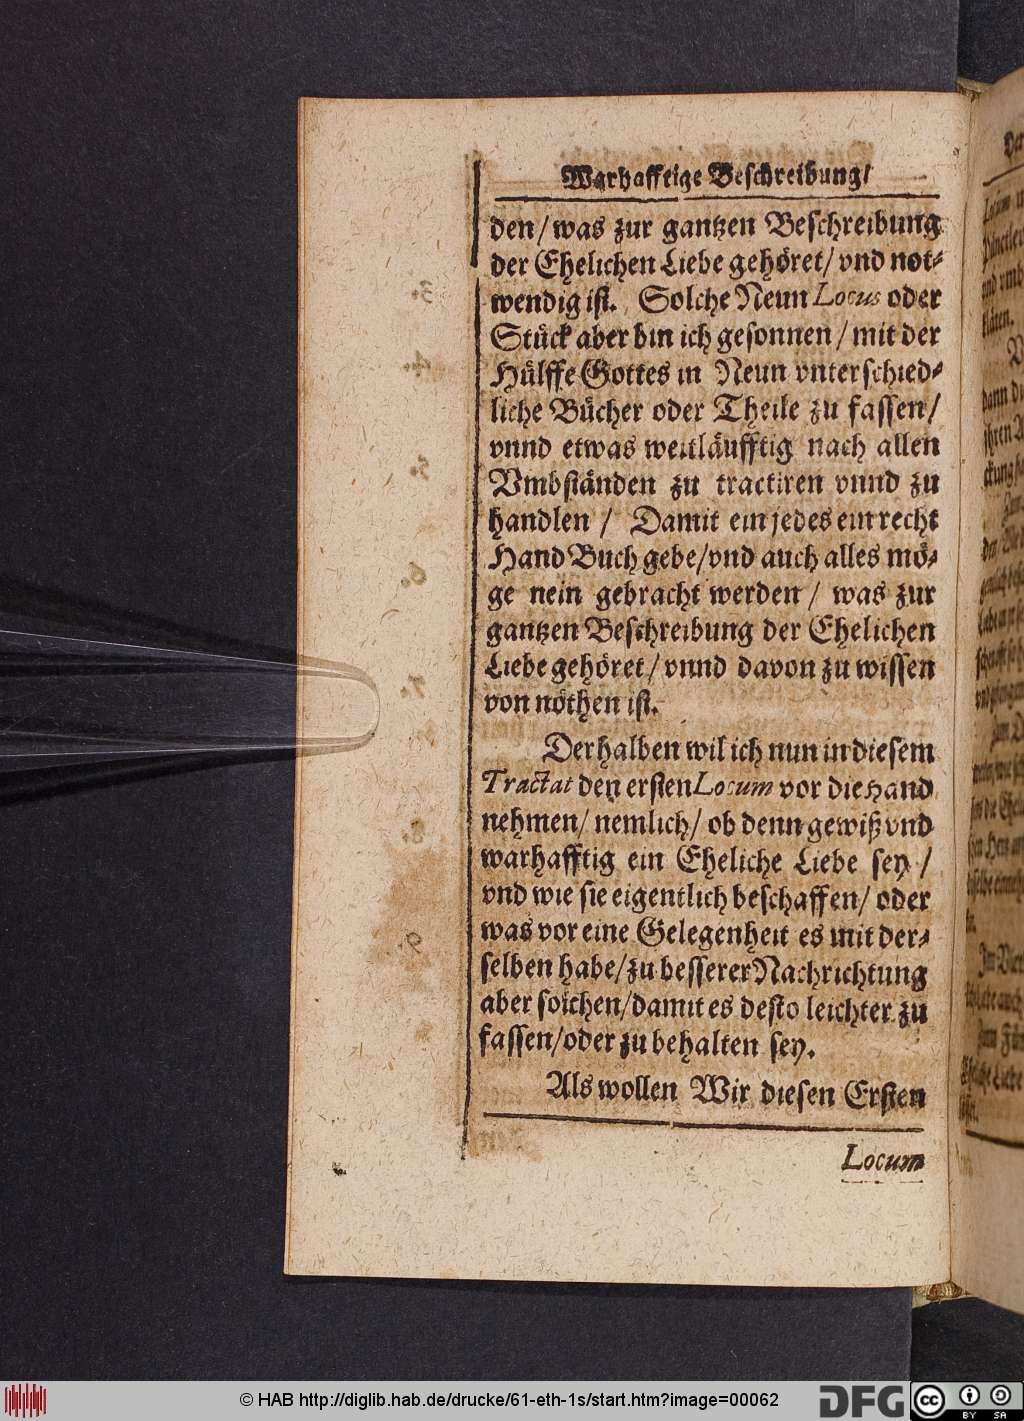 Warhafftige Beschreibung/
den/ was zur gantzen Beschreibung
der Ehelichen Liebe gehöret/ vnd not-
wendig ist. Solche Neun Locus oder
Stück aber bin ich gesonnen / mit der
Hülffe Gottes in Neun vnterschied-
liche Bücher oder Theile zu fassen/
vnnd etwas weitläufftig nach allen
Vmbständen zu tractiren vnnd zu
handlen / Damit ein jedes ein recht
Hand Buch gebe/ vnd auch alles mö-
ge nein gebracht werden / was zur
gantzen Beschreibung der Ehelichen
Liebe gehöret/ vnnd davon zu wissen
von nöthen ist.
Derhalben wil ich nun in diesem
Tractat den ersten Locum vor die Hand
nehmen/ nemlich/ ob denn gewiß vnd
warhafftig ein Eheliche Liebe sey /
vnd wie sie eigentlich beschaffen/ oder
was vor eine Gelegenheit es mit der-
selben habe/ zu besserer Nachrichtung
aber solchen/ damit es desto leichter zu
fassen/ oder zu behalten sey.
Als wollen Wir diesen Ersten
Locum
© HAB http://diglib.hab.de/drucke/61-eth-1s/start.htm?image=00062
DFG
cc BY SA